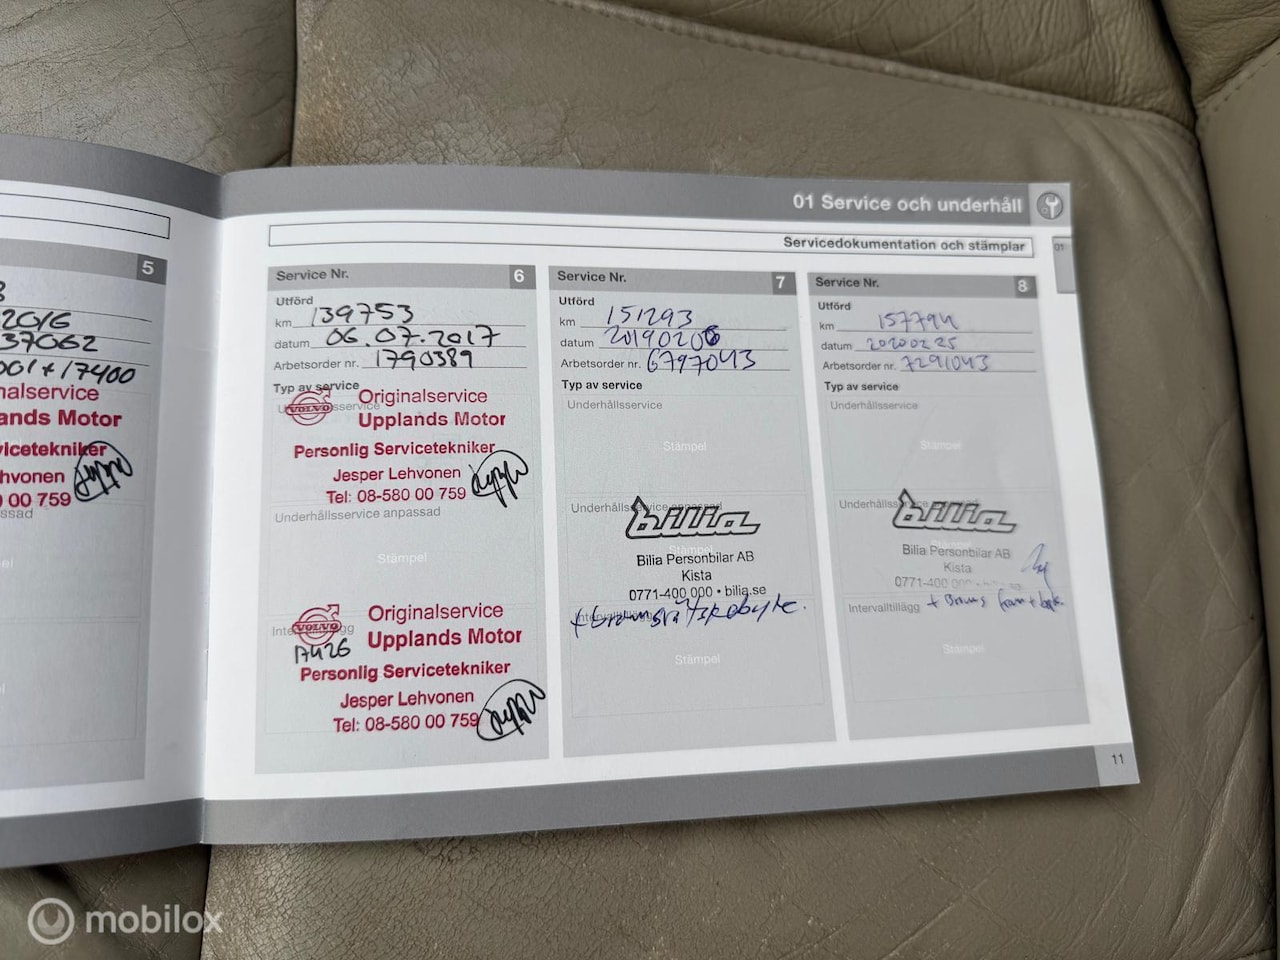 5
2016
37062
001 + 17400
inalservice
ands Motor
vicetekniker
hvonen
00 759
ssad
01 Service och underhåll
Servicedokumentation och stämplar
01
Service Nr. 6
Utförd
km 139753
datum 06.07.2017
Arbetsorder nr. 1790389
Typ av service
Underhållsservice
VOLVO
Originalservice
Upplands Motor
Personlig Servicetekniker
Jesper Lehvonen
Tel: 08-580 00 759
Underhållsservice anpassad
Stämpel
Intervalltillägg
VOLVO
17426
Originalservice
Upplands Motor
Personlig Servicetekniker
Jesper Lehvonen
Tel: 08-580 00 759
Service Nr. 7
Utförd
km 151293
datum 20190206
Arbetsorder nr. 6797043
Typ av service
Underhållsservice
Stämpel
Underhållsservice anpassad
bilia
Stämpel
Bilia Personbilar AB
Kista
0771-400 000 • bilia.se
Intervalltillägg
+ bromsvätskebyte.
Stämpel
Service Nr. 8
Utförd
km 157794
datum 20200225
Arbetsorder nr. 7291043
Typ av service
Underhållsservice
Stämpel
Underhållsservice anpassad
bilia
Stämpel
Bilia Personbilar AB
Kista
0771-400 000
Intervalltillägg
+ Broms fram + bak.
Stämpel
11
mobilox